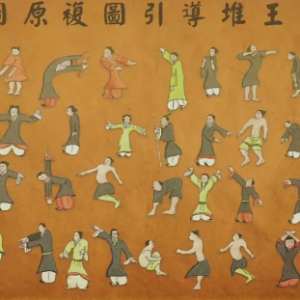 王堆導引圖複原